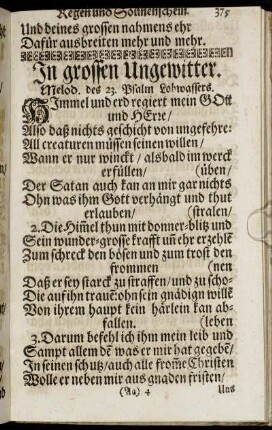 Regen und Sonnenschein. 375
Und deines grossen nahmens ehr
Dafür ausbreiten mehr und mehr.
In grossen Ungewitter.
Melod. des 23. Psalm Lobwassers.
HImmel und erd regiert mein GOtt
und HErr/
Also daß nichts geschicht von ungefehre:
All creaturen müssen seinen willen/
Wann er nur winckt / alsbald im werck
erfüllen/ (üben/
Der Satan auch kan an mir gar nichts
Ohn was ihm Gott verhängt und thut
erlauben/ (stralen/
2. Die Him̃el thun mit donner-blitz und
Sein wunder-grosse krafft uñ ehr erzehlẽ
Zum schreck den bösen und zum trost den
frommen (nen
Daß er sey starck zu straffen/ und zu scho-
Die auf ihn trauẽ: ohn sein gnädign willẽ
Von ihrem haupt kein härlein kan ab-
fallen. (leben
3. Darum befehl ich ihm mein leib und
Sampt allem dẽ was er mir hat gegebẽ/
In seinen schutz/ auch alle from̃e Christen
Wolle er neben mir aus gnaden fristen/
(Aa) 4 Uns